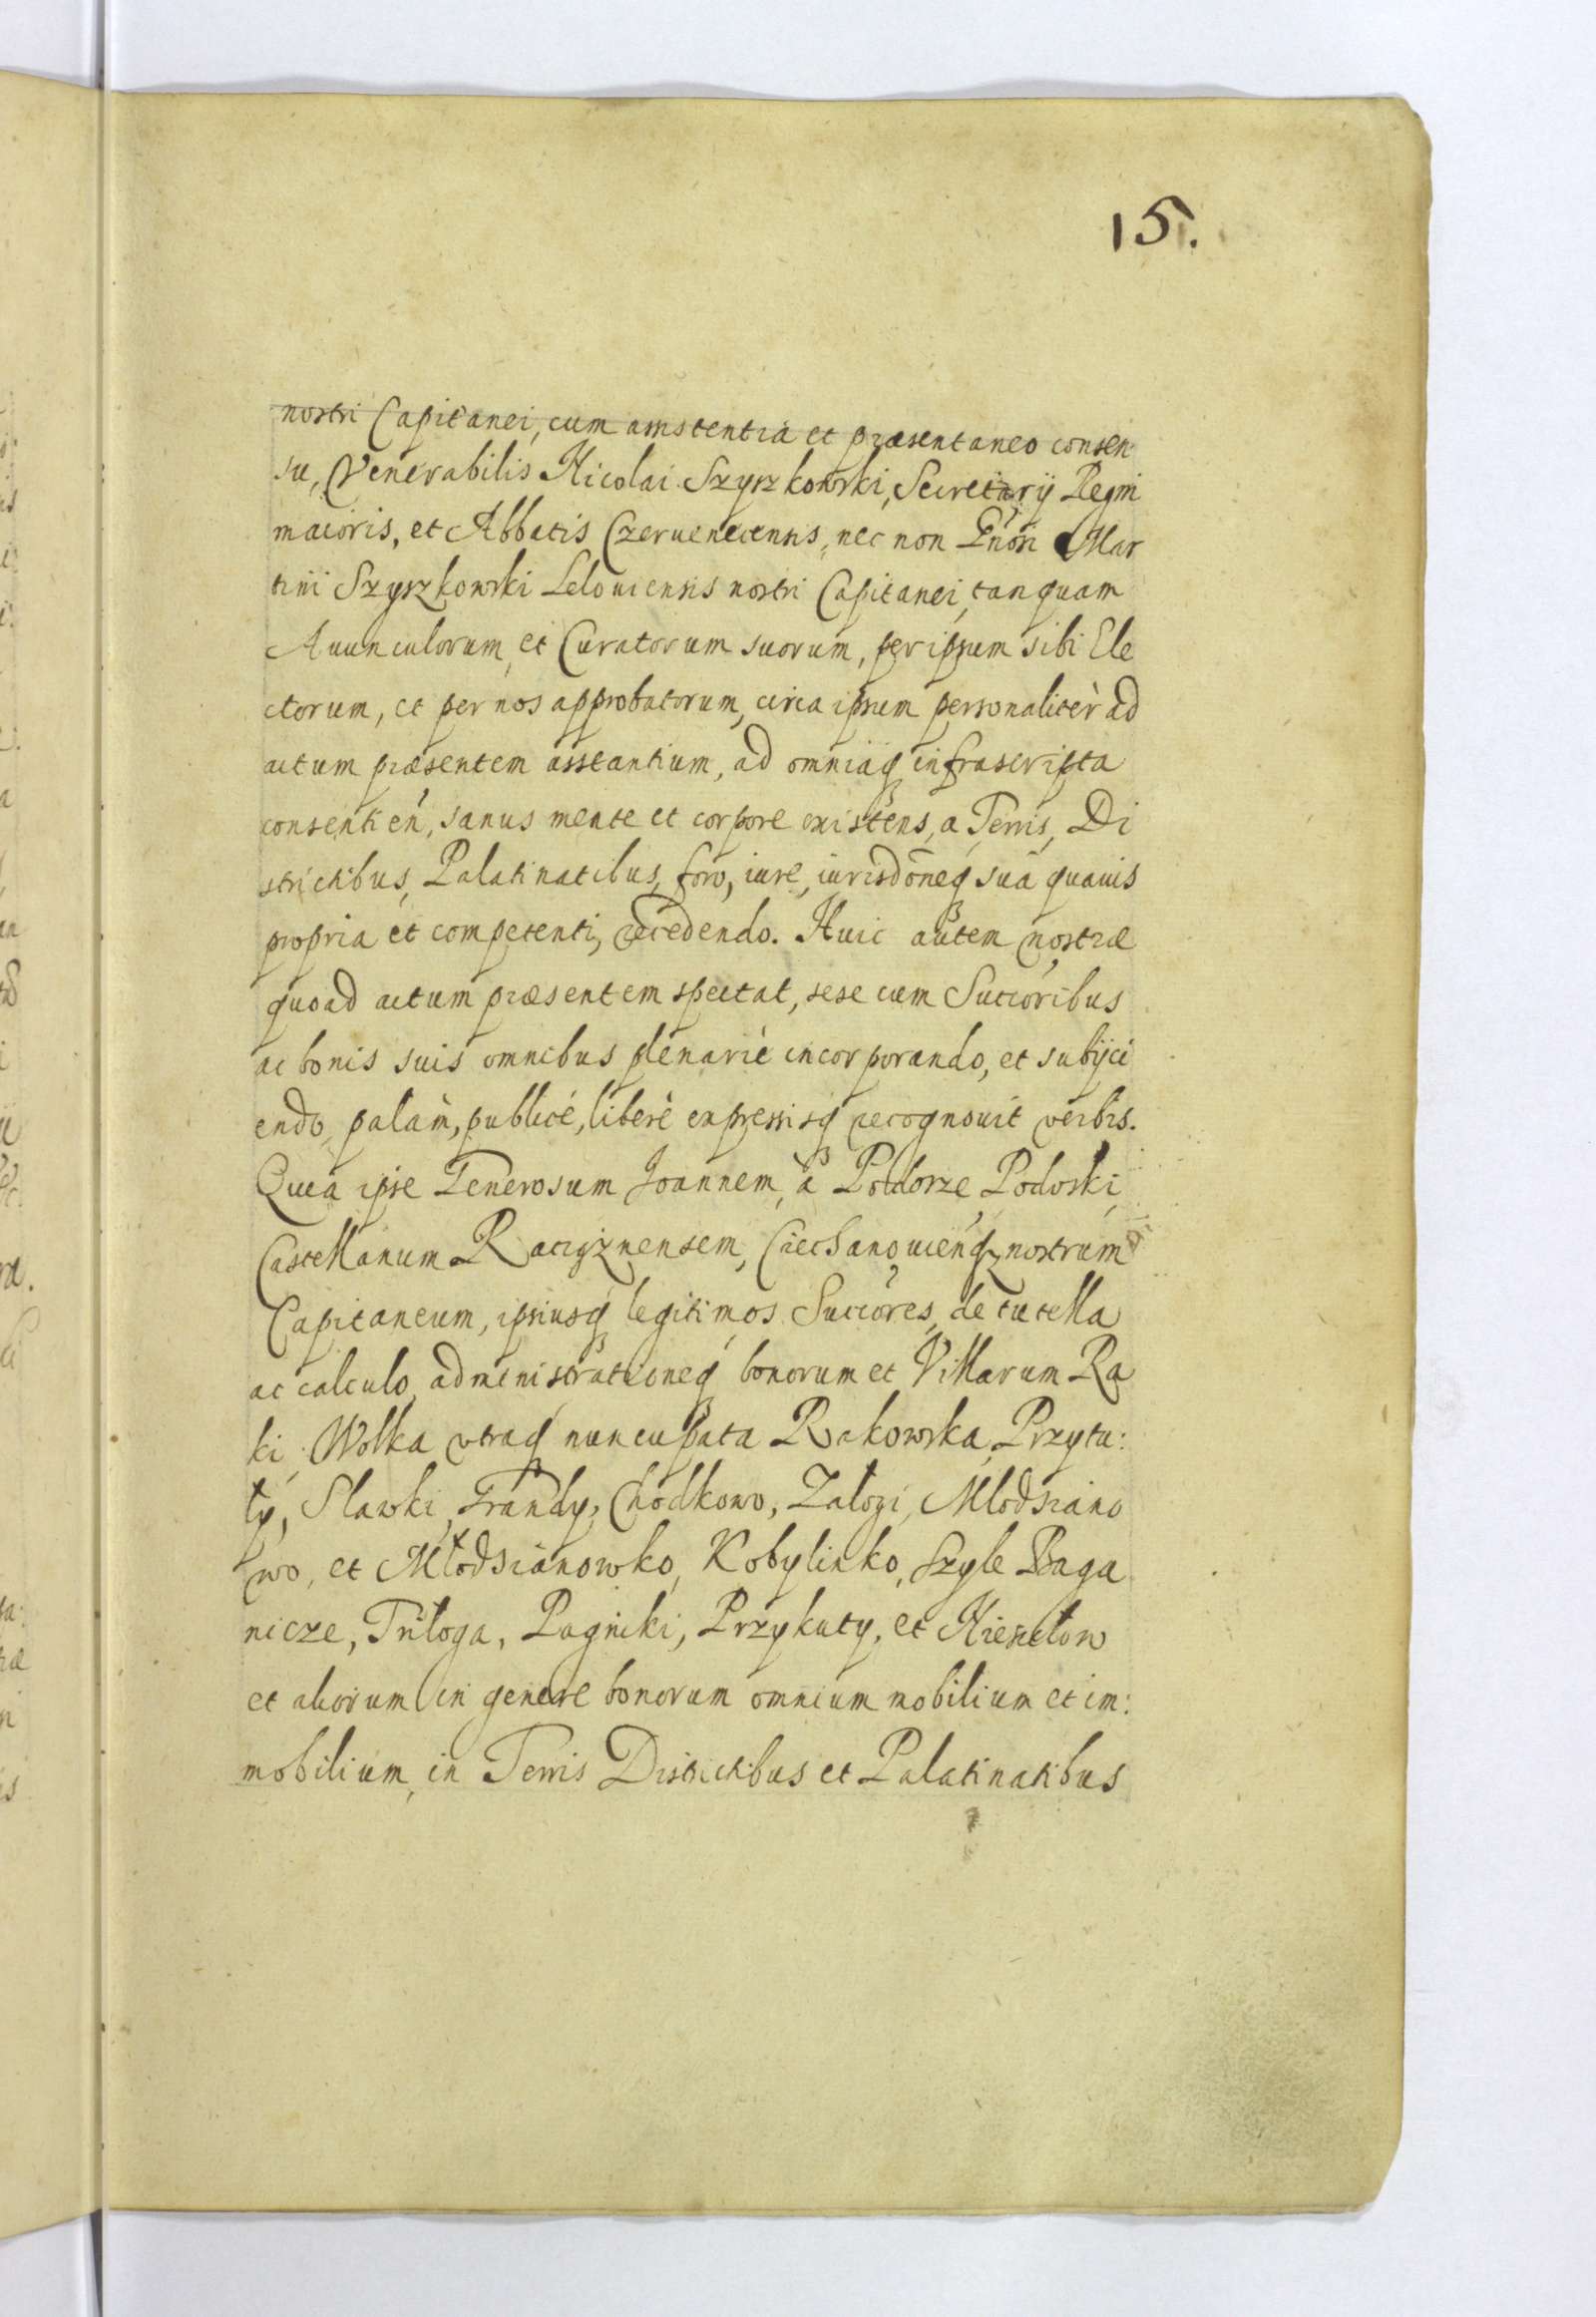 15.
nostri Capitanei, cum assistentia et præsentaneo consen
su, Venerabilis Nicolai Szyszkowski, Secretarij Regni
maioris, et Abbatis Czerueniensis, nec non Gnosi Mar
tini Szyszkowski Leloviensis nostri Capitanei, tanquam
Auunculorum, et Curatorum suorum, per ipsum sibi Ele
ctorum, et per nos approbatorum, circa ipsum personalitèr ad
actum præsentem asstantium, ad omniaq infrascripta
consentien, sanus mente et corpore existens, a Terris, Di
strictibus, Palatinatibus, foro, iure, iurisdoneq suâ quauis
propria et competenti, recedendo. Huic autem nostræ
quoad actum præsentem spectat, sese cum Succoribus
ac bonis suis omnibus plenariè incorporando, et subijci
endo, palàm, publicé, liberè expressisq recognouit verbis.
Quia ipse Generosum Joannem, à Podorze Podoski,
Castellanum Raciąznensem, Ciechanouienq nostrum
Capitaneum, ipsiusq legitimos Succores, de tutella
ac calculo, administrationeq bonorum et Villarum Ra
ki, Wolka utraq nuncupata Rakowska, Przytu:
ły, Slawki, Grandy, Chodkowo, Załogi, Młodsiano
wo, et Młodsianowko, Kobylinko, Szyle Baga
nicze, Triłoga, Pagniki, Przykuty, et
et aliorum in genere bonorum omnium mobilium et im:
mobilium, in Terris Districtibus et Palatinatibus